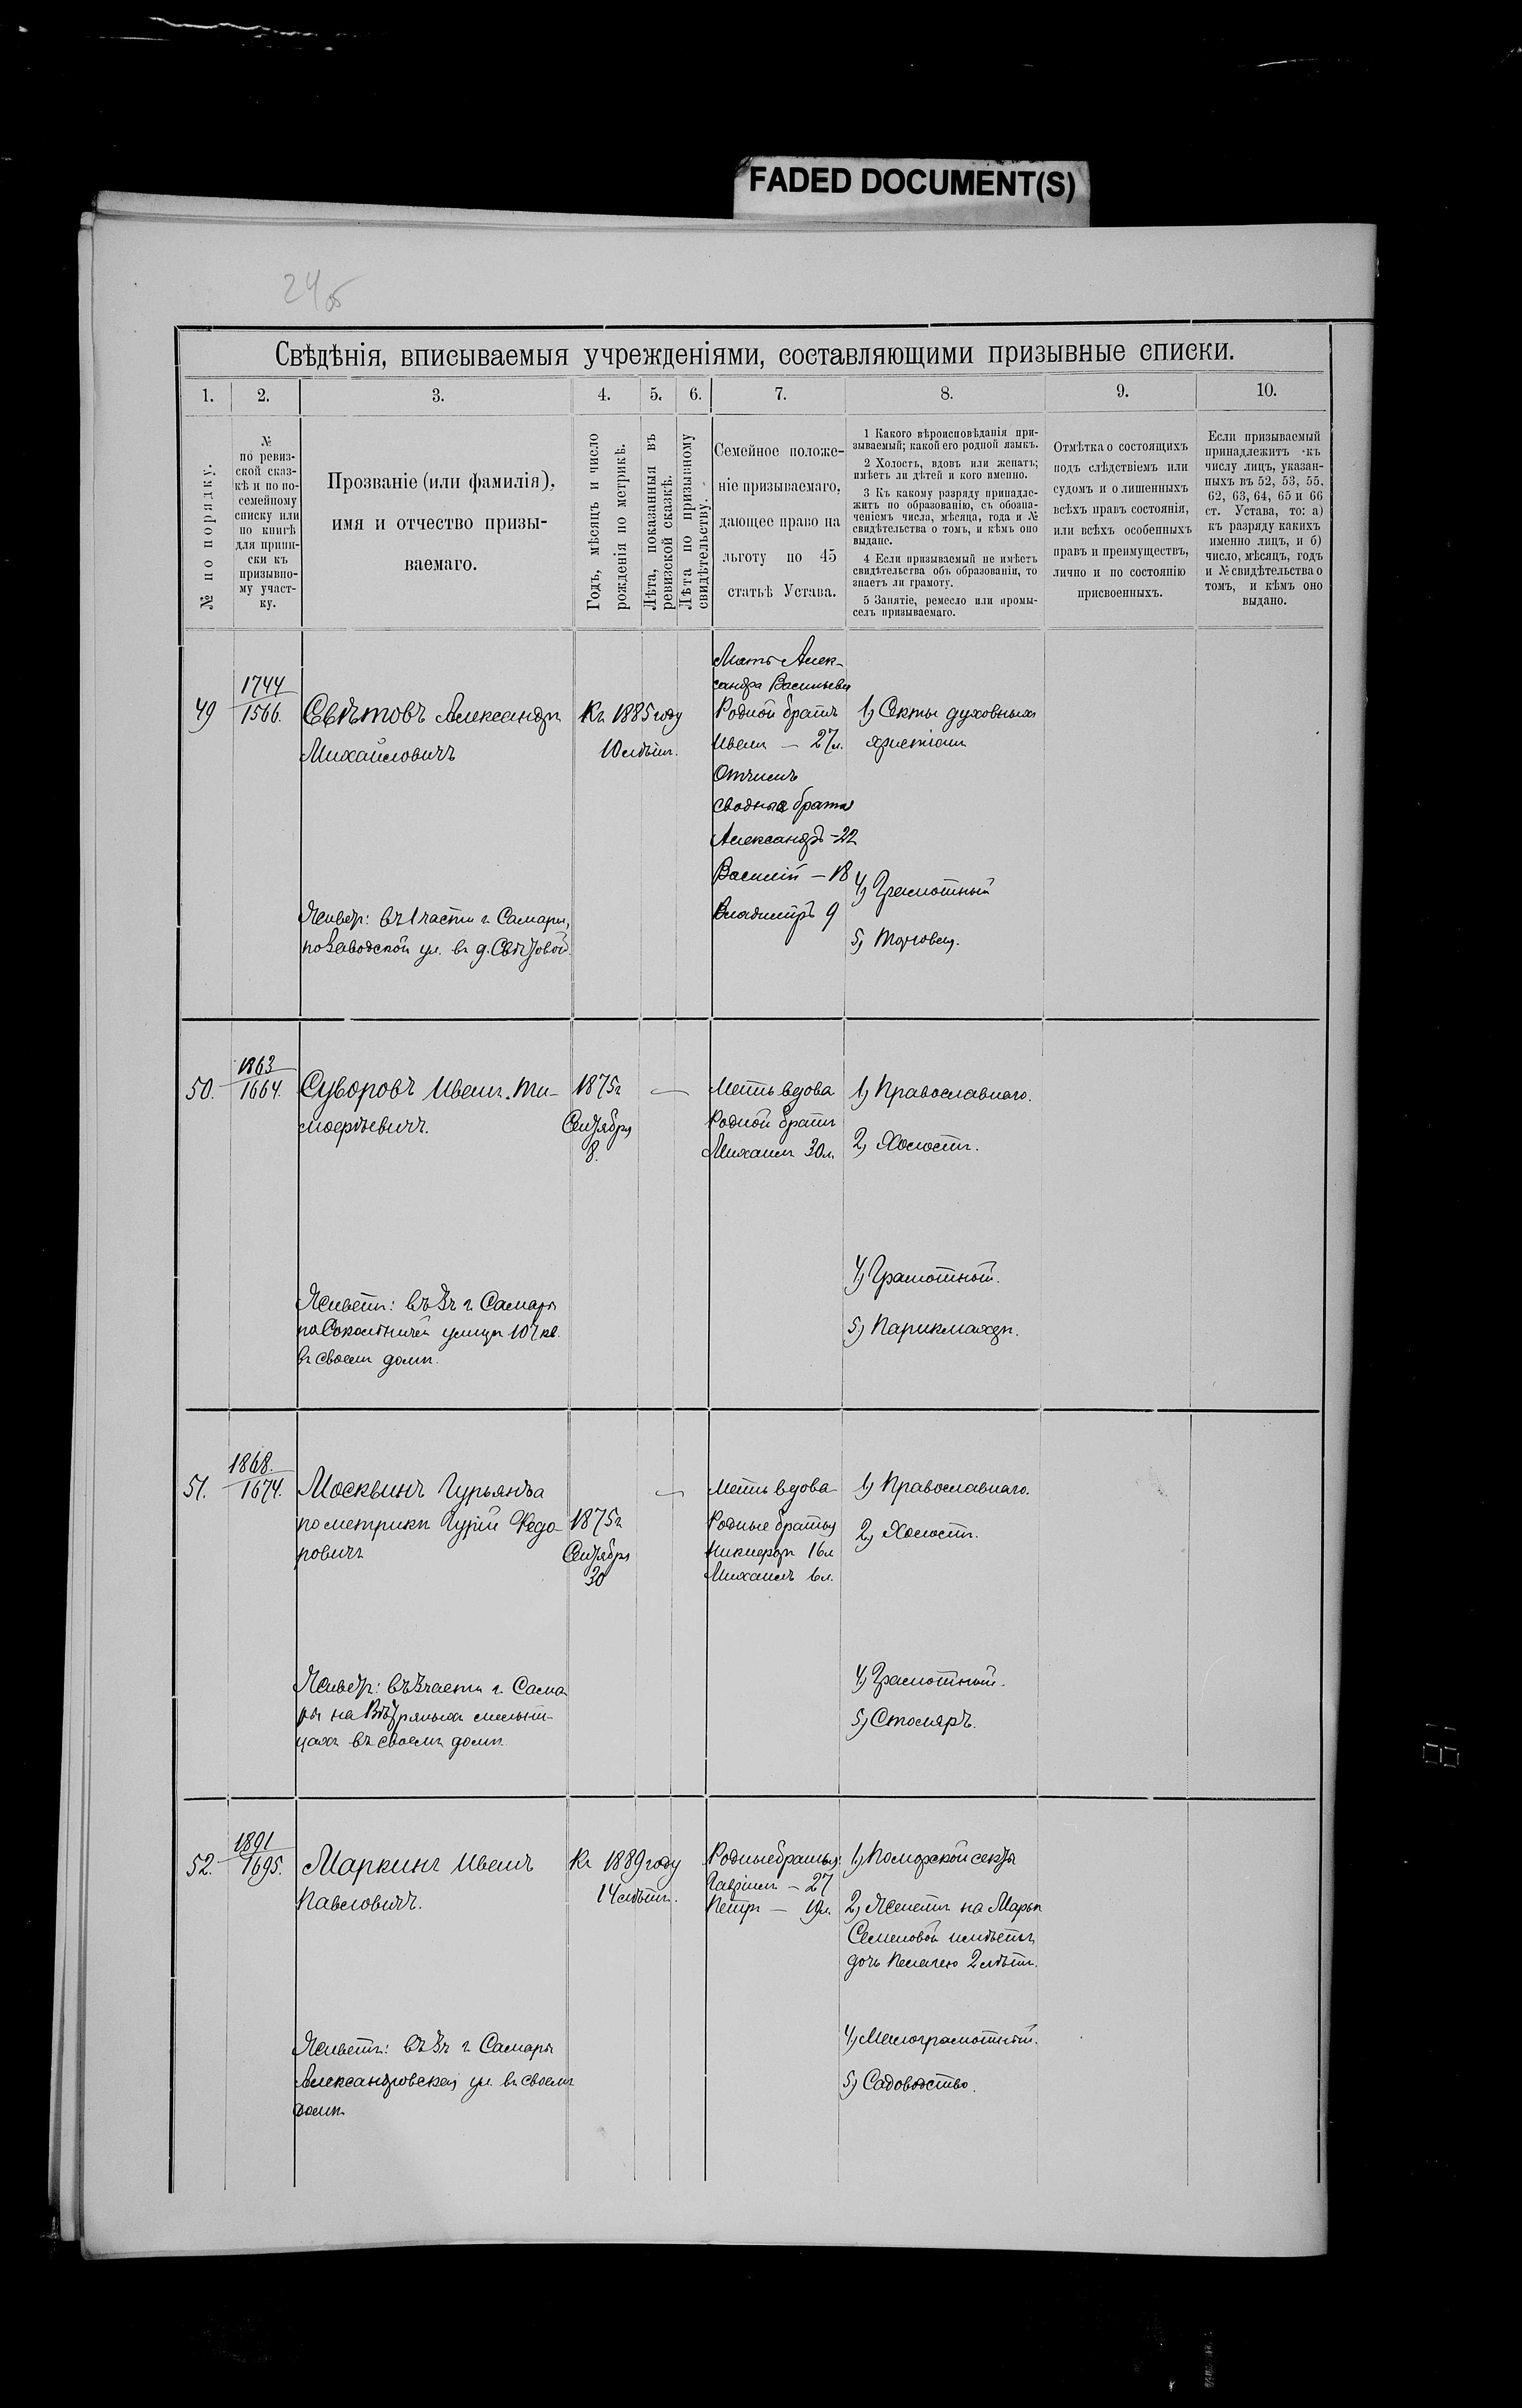 FADED DOCUMENT(S)
24об
Свѣдѣнія, вписываемыя учрежденіями, составляющими призывные списки.
1.
2.
3.
4.
5.
6.
7.
8.
9.
10.
№ по порядку.
№
по ревиз-
ской сказ-
кѣ и по по-
семейному
списку или
по книгѣ
для припи-
ски къ
призывно-
му участ-
ку.
Прозваніе (или фамилія),
имя и отчество призы-
ваемаго.
Годъ, мѣсяцъ и число
рожденія по метрикѣ.
Лѣта, показанныя въ
ревизской сказкѣ.
Лѣта по призывному
свидѣтельству.
Семейное положе-
ніе призываемаго,
дающее право на
льготу по 45
статьѣ Устава.
1 Какого вѣроисповѣданія при-
зываемый; какой его родной языкъ.
2 Холостъ, вдовъ или женатъ;
имѣетъ ли дѣтей и кого именно.
3 Къ какому разряду принадле-
житъ по образованію, съ обозна-
ченіемъ числа, мѣсяца, года и №
свидѣтельства о томъ, и кѣмъ оно
выдано.
4 Если призываемый не имѣетъ
свидѣтельства объ образованіи, то
знаетъ ли грамоту.
5 Занятіе, ремесло или промы-
селъ призываемаго.
Отмѣтка о состоящихъ
подъ слѣдствіемъ или
судомъ и о лишенныхъ
всѣхъ правъ состоянія,
или всѣхъ особенныхъ
правъ и преимуществъ,
лично и по состоянію
присвоенныхъ.
Если призываемый
принадлежитъ къ
числу лицъ, указан-
ныхъ въ 52, 53, 55.
62, 63, 64, 65 и 66
ст. Устава, то: а)
къ разряду какихъ
именно лицъ, и б)
число, мѣсяцъ, годъ
и № свидѣтельства о
томъ, и кѣмъ оно
выдано.
49
1744
1566.
Свѣтовъ Александръ
Михайловичъ
Живетъ: въ 1 части г. Самары,
по Заводской ул. въ д. Свѣтовой.
Къ 1885 году
10 лѣтъ.
Мать Алек-
сандра Васильевна
Родной братъ
Иванъ — 27л.
Отчимъ
сводные братья
Александръ — 22
Василій — 18
Владиміръ 9
1) Секты духовныхъ
христіанъ
4) Грамотный
5) Торговец.
50.
1863
1664.
Суворовъ Иванъ Ти-
мофѣевичъ.
Живетъ: въ 3ч г. Самары
по Сокольничьей улицѣ 107 кв.
въ своемъ домѣ.
1875г
Сентября
8.
—
Мать вдова
Родной братъ
Михаилъ 30л.
1) Православнаго.
2) Холостъ.
4) Грамотный.
5) Парикмахеръ.
51.
1868.
1674.
Москвинъ Гурьянъ а
по метрикѣ Гурій Федо-
ровичъ
Живетъ: въ 3 части г. Сама-
ры на Вѣтряныхъ мельни-
цахъ въ своемъ домѣ.
1875г
Сентября
30
—
Мать вдова
Родные братья
Никифоръ 16л
Михаилъ 6л.
1) Православнаго.
2) Холостъ.
4) Грамотный.
5) Столяръ.
52.
1891
1695.
Маркинъ Иванъ
Павловичъ.
Живетъ: въ 3ч г. Самары
Александровская ул. въ своемъ
домѣ
Къ 1889 году
14 лѣтъ.
Родные братья:
Гавріилъ — 27
Петръ — 19л.
1) Поморской секты
2) Женатъ на Марьѣ
Семеновой имѣетъ
дочь Пелагею 2 лѣтъ.
4) Малограмотный.
5) Садоводство.